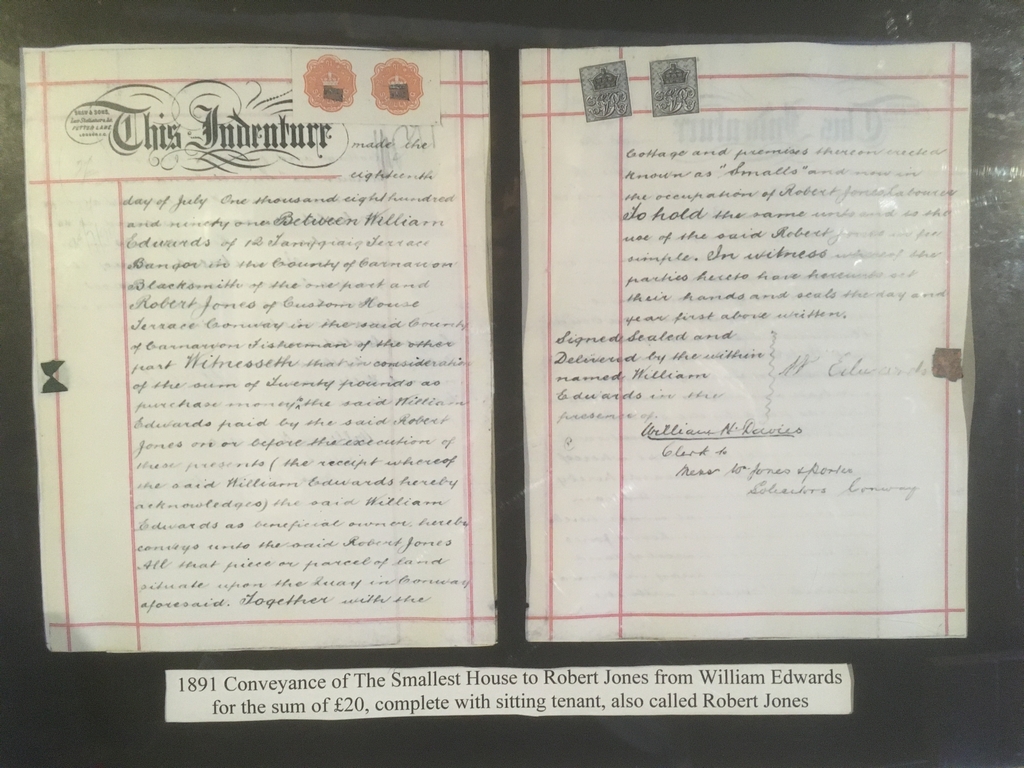 This Indenture made the
eighteenth
day of July One thousand eight hundred
and ninety one Between William
Edwards of 12 Tanygraig Terrace
Bangor in the County of Carnarvon
Blacksmith of the one part and
Robert Jones of Custom House
Terrace Conway in the said County
of Carnarvon Fisherman of the other
part Witnesseth that in consideration
of the sum of Twenty pounds as
purchase money the said William
Edwards paid by the said Robert
Jones on or before the execution of
these presents (the receipt whereof
the said William Edwards hereby
acknowledges) the said William
Edwards as beneficial owner hereby
conveys unto the said Robert Jones
All that piece or parcel of land
situate upon the Quay in Conway
aforesaid. Together with the
Cottage and premises thereon erected
known as "Smalls" and now in
the occupation of Robert Jones Labourer
To hold the same unto and to the
use of the said Robert Jones in fee
simple. In witness whereof the
parties hereto have hereunto set
their hands and seals the day and
year first above written.
Signed Sealed and
Delivered by the within
named William
Edwards in the
presence of
W Edwards
William H. Davies
Clerk to
Mess Wm Jones & Porter
Solicitors Conway
1891 Conveyance of The Smallest House to Robert Jones from William Edwards
for the sum of £20, complete with sitting tenant, also called Robert Jones